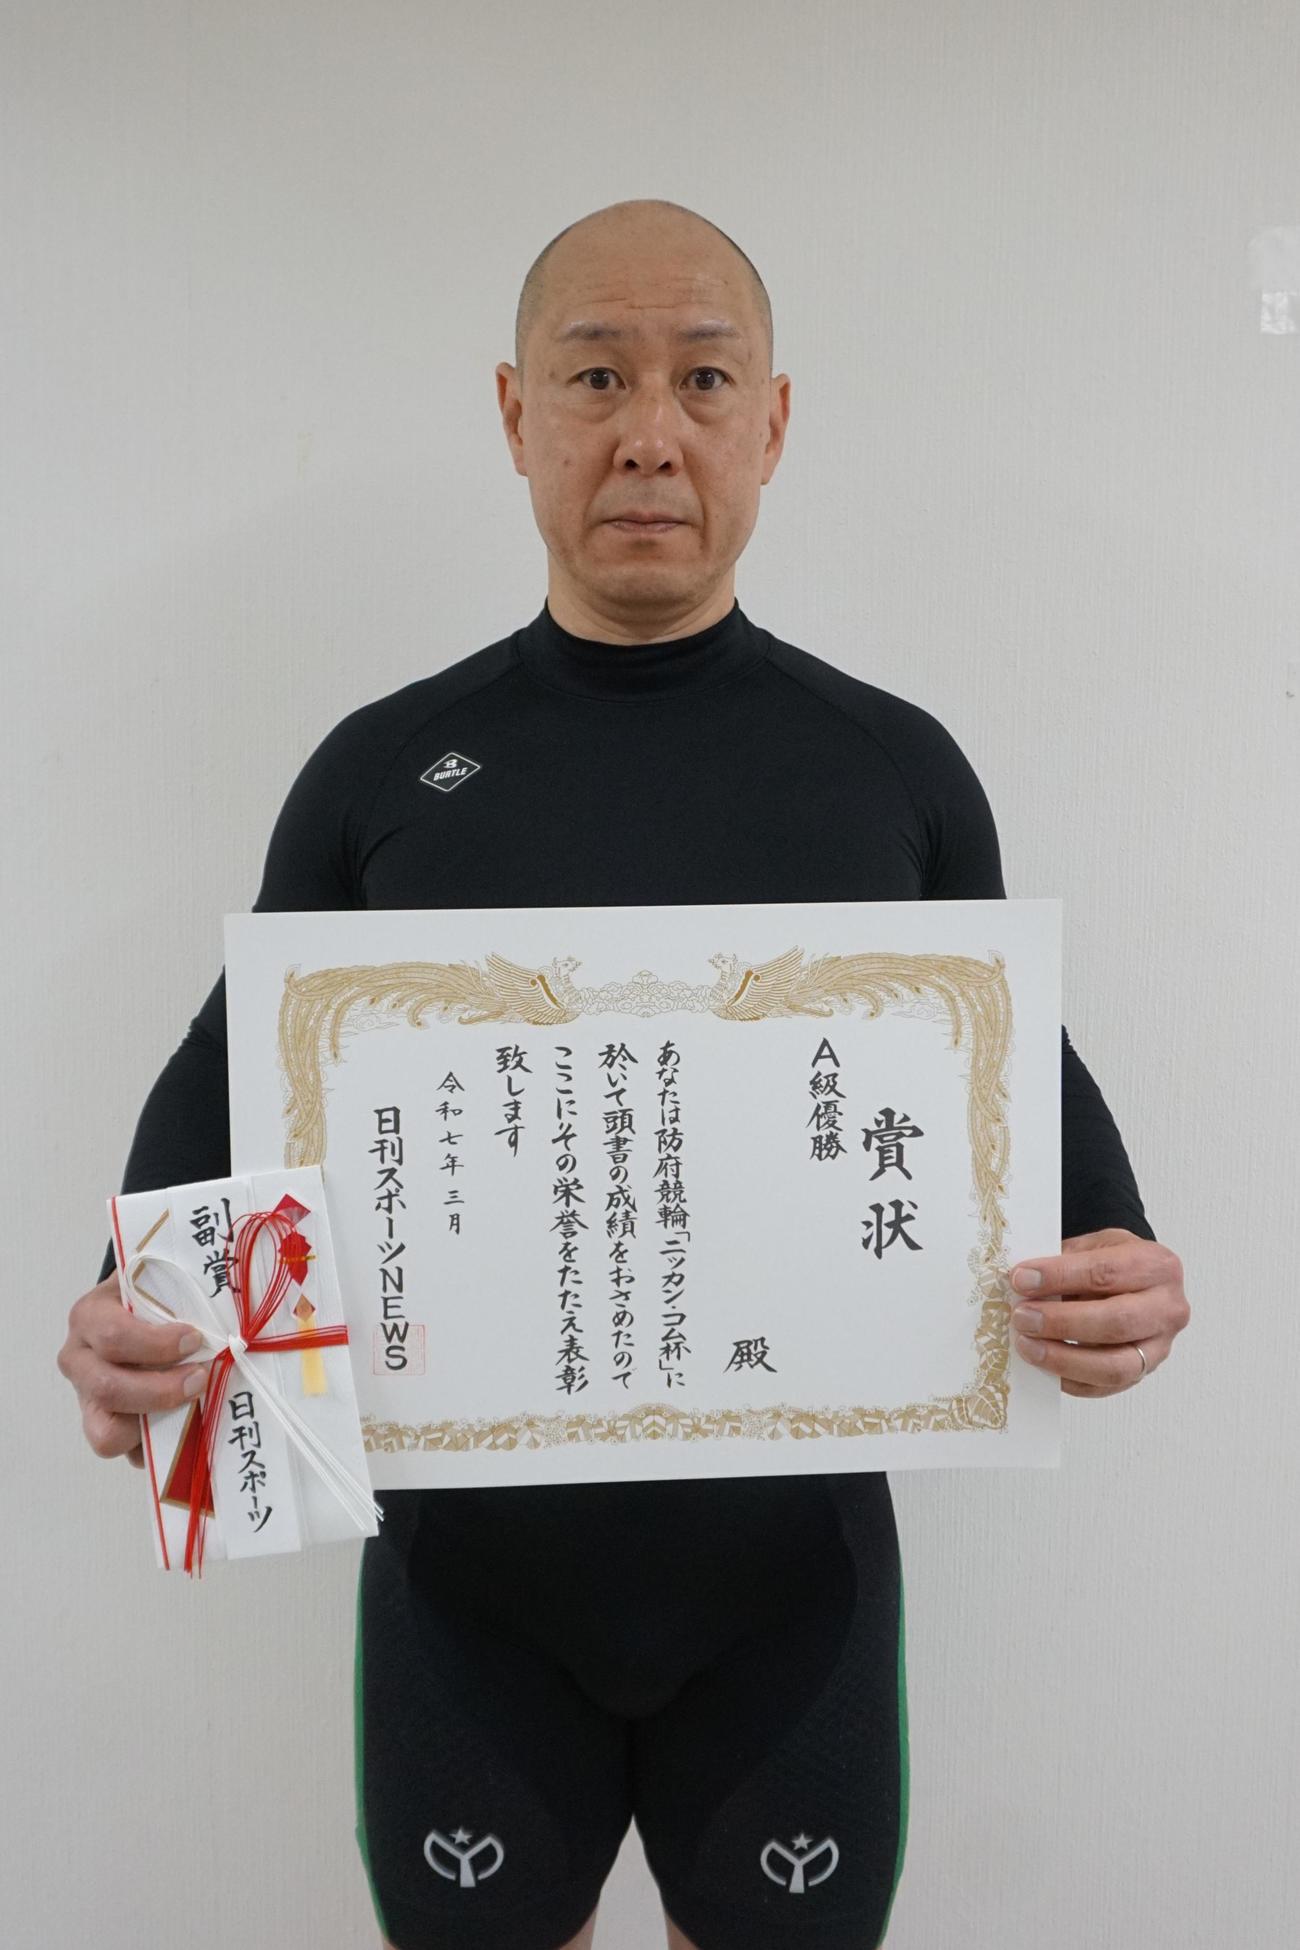 賞状
A級優勝
殿
あなたは防府競輪「ニッカン・コム杯」に
於いて頭書の成績をおさめたので
ここにその栄誉をたたえ表彰
致します
令和七年三月
日刊スポーツNEWS
副賞
日刊スポーツ
B
BURTLE